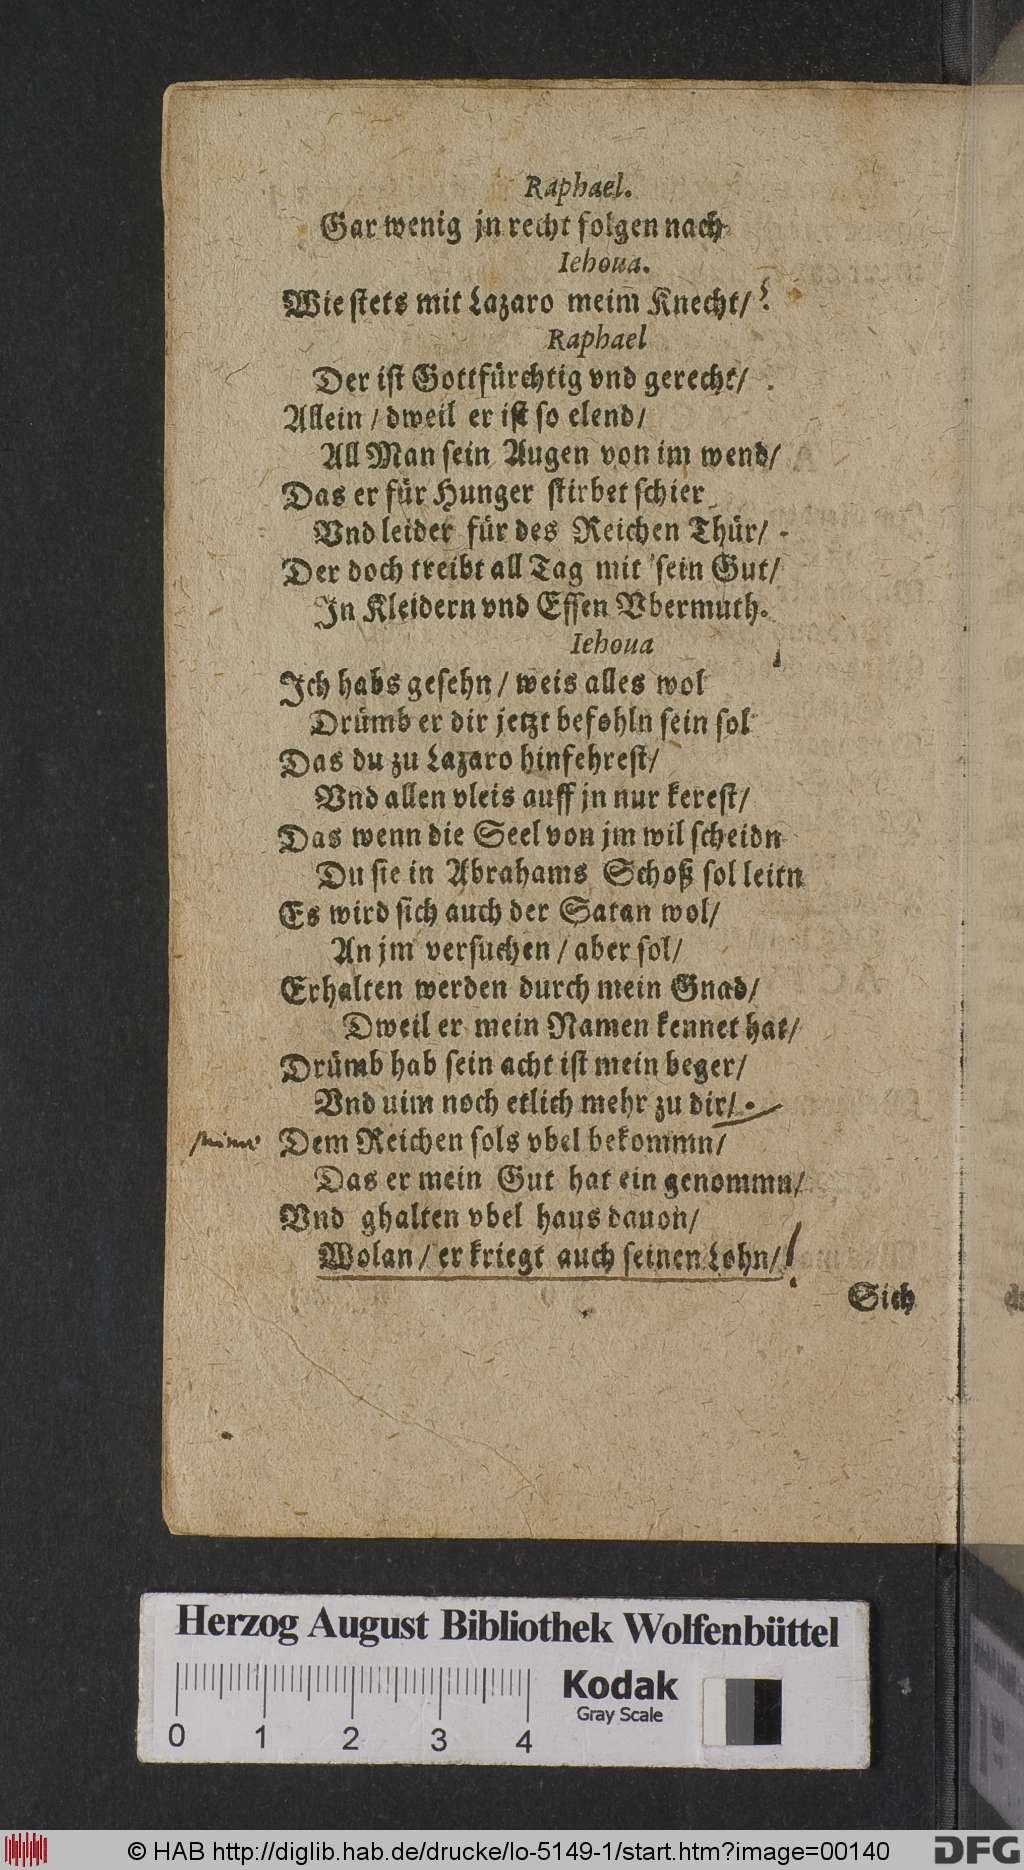 Raphael.
Gar wenig jn recht folgen nach
Iehoua.
Wie stets mit Lazaro meim Knecht/?
Raphael
Der ist Gottfürchtig vnd gerecht/.
Allein / dweil er ist so elend/
All Man sein Augen von im wend/
Das er für Hunger stirbet schier
Vnd leider für des Reichen Thür/
Der doch treibt all Tag mit sein Gut/
In Kleidern vnd Essen Vbermuth.
Iehoua
Ich habs gesehn / weis alles wol
Drümb er dir jetzt befohln sein sol
Das du zu Lazaro hinfehrest/
Vnd allen vleis auff jn nur kerest/
Das wenn die Seel von jm wil scheidn
Du sie in Abrahams Schoß sol leitn
Es wird sich auch der Satan wol/
An jm versuchen / aber sol/
Erhalten werden durch mein Gnad/
Dweil er mein Namen kennet hat/
Drümb hab sein acht ist mein beger/
Vnd uim noch etlich mehr zu dir/.
Dem Reichen sols vbel bekommn/
Das er mein Gut hat ein genommn/
Vnd ghalten vbel haus dauon/
Wolan / er kriegt auch seinen Lohn/!
Sich
Herzog August Bibliothek Wolfenbüttel
Kodak
Gray Scale
0 1 2 3 4
© HAB http://diglib.hab.de/drucke/lo-5149-1/start.htm?image=00140
DFG